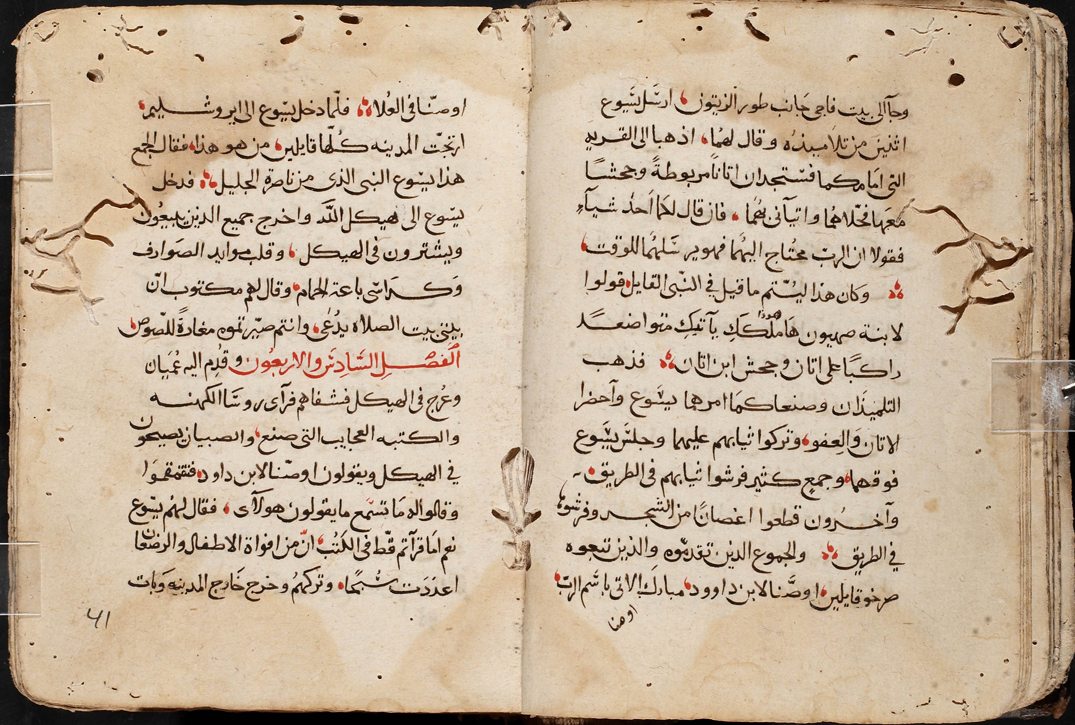 وجآ الى بيت فاجى جانب طور الزيتون ارسل يسوع
اثنين من تلاميذه وقال لهما اذهبا الى القريه
التى امامكما فستجدان اتاناً مربوطةً وجحشا
معها فحلاهما واتيآنى بهما فان قال لكما احدُ شيآء
فقولا ان الرب محتاج اليهما فهو يرسلهما للوقت
وكان هذا ليتم ما قيل فى النبى القايل قولوا
لابنة صهيون هاملككِ يآتيك متواضعا
راكبًا على اتان وجحش ابن اتان فذهب
التلميذان وصنعا كما امرهما يسوع وآحضرا
الاتان والعفو وتركوا ثيابهم عليهما وجلس يسوع
فوقهما وجمع كثير فرشوا ثيابهم فى الطريق
وآخرون قطعوا اغصانًا من الشجر وفرشوها
فى الطريق والجموع الذين تقدموه والذين تبعوه
صرخو قايلين اوصّنا لابن داوود مبارك الاتى باسم الرب
اوصنا
اوصّنا فى العُلا فلما دخل يسوع الى ايروشليم
ارتجّت المدينه كُلها قايلين من هو هذا فقال الجمع
هذا يسوع النبى الذى من ناصرة الجليل فدخل
يسوع الى هيكل الله واخرج جميع الذين يبيعون
ويشترون فى الهيكل وقلب موايد الصوارف
وكراسى باعة الحمام وقال لهم مكتوب انّ
بيتى بيت الصلاه يدُعى وانتم صيّرتموه مغارةً للصوص
الفصل السادس والاربعون وقُدم اليه عُميان
وعُرج فى الهيكل فشفاهم فرآى روسا الكهنه
والكتبه العجايب التى صنع والصبيان يصيحون
فى الهيكل ويقولون اوصّنا لابن داود فتقمقموا
وقالوا له ما تسمع ما يقولون هولآى فقال لهم يسوع
نعم اما قرآتم قط فى الكتُب انّ من افواة الاطفال والرضعان
اعددت سُبحًا وتركهم وخرج خارج المدينه وبات
41